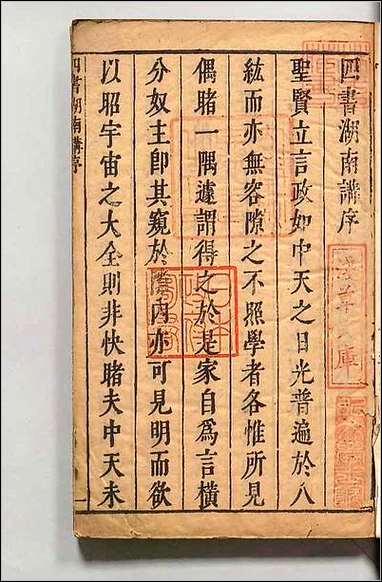 四書湖南講序
聖賢立言政如中天之日光普遍於八
紘而亦無容隙之不照學者各惟所見
偶睹一隅遽謂得之於是家自為言橫
分奴主即其窺於内亦可見明而欲
以昭宇宙之大全則非快睹夫中天未
四書湖南講序